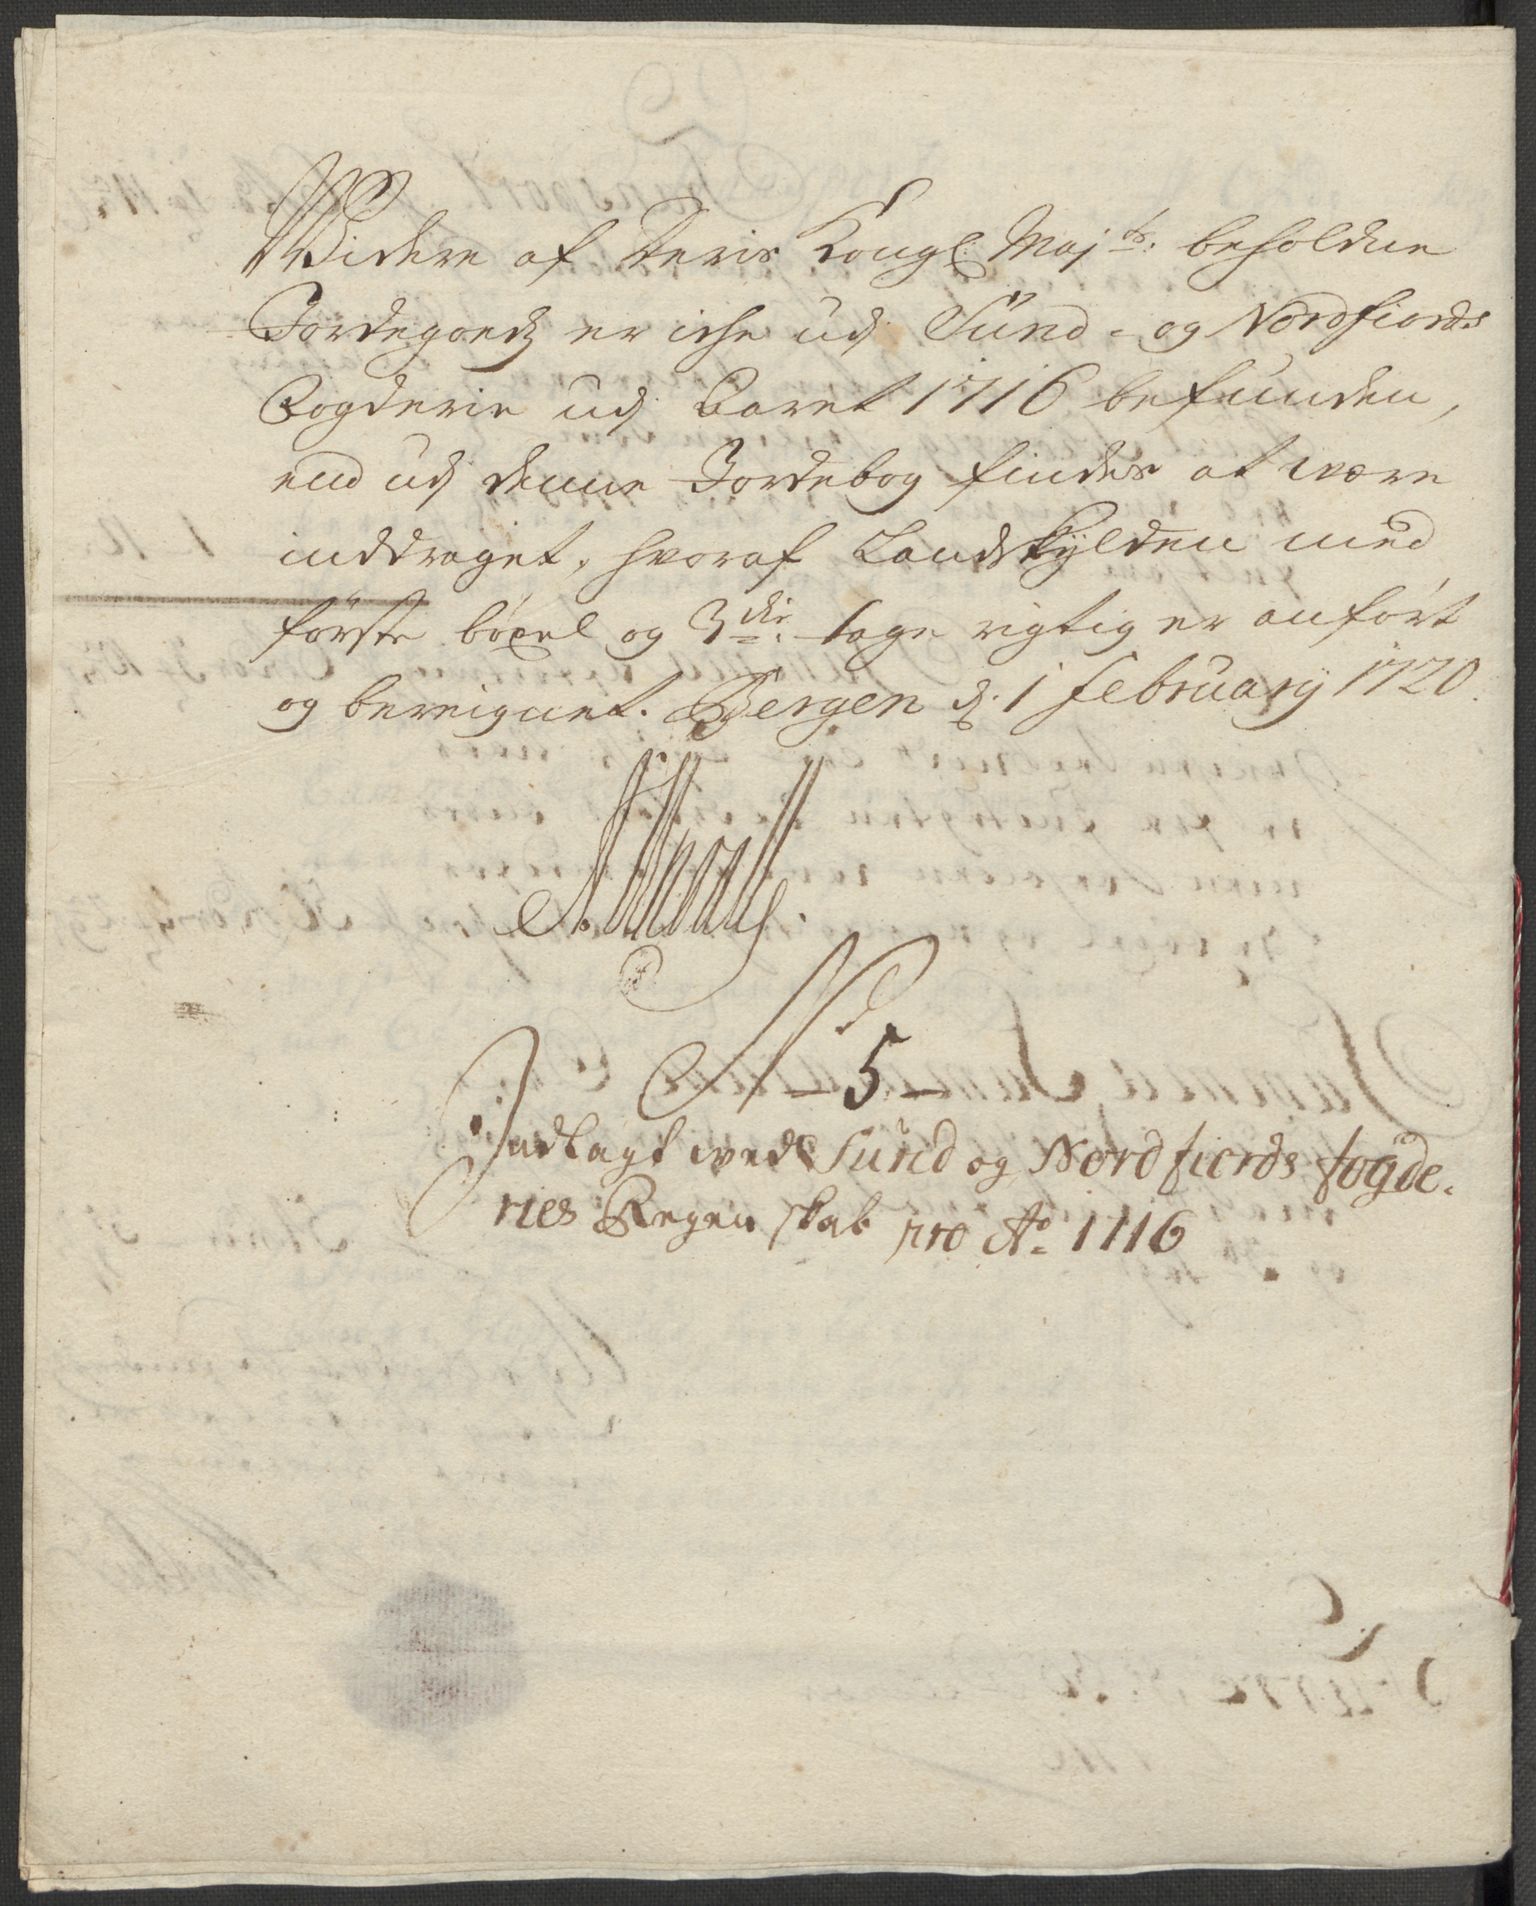 Widere af Deris Kongl: Maj:ts: beholdne
Jordegoedz er iche udj Sund- og Nordfiords
Fogderie udj Aaret 1716 befunden,
end udj denne Jordebog findes at være
inddraget, hvoraf Landskylden med
første böxel og 3die tage rigtig er anført
og bereignet. Bergen d: 1 February 1720.
No 5
Indlagt wed Sund og Nordfiords fogde-
ries Regenskab pro Ao 1716